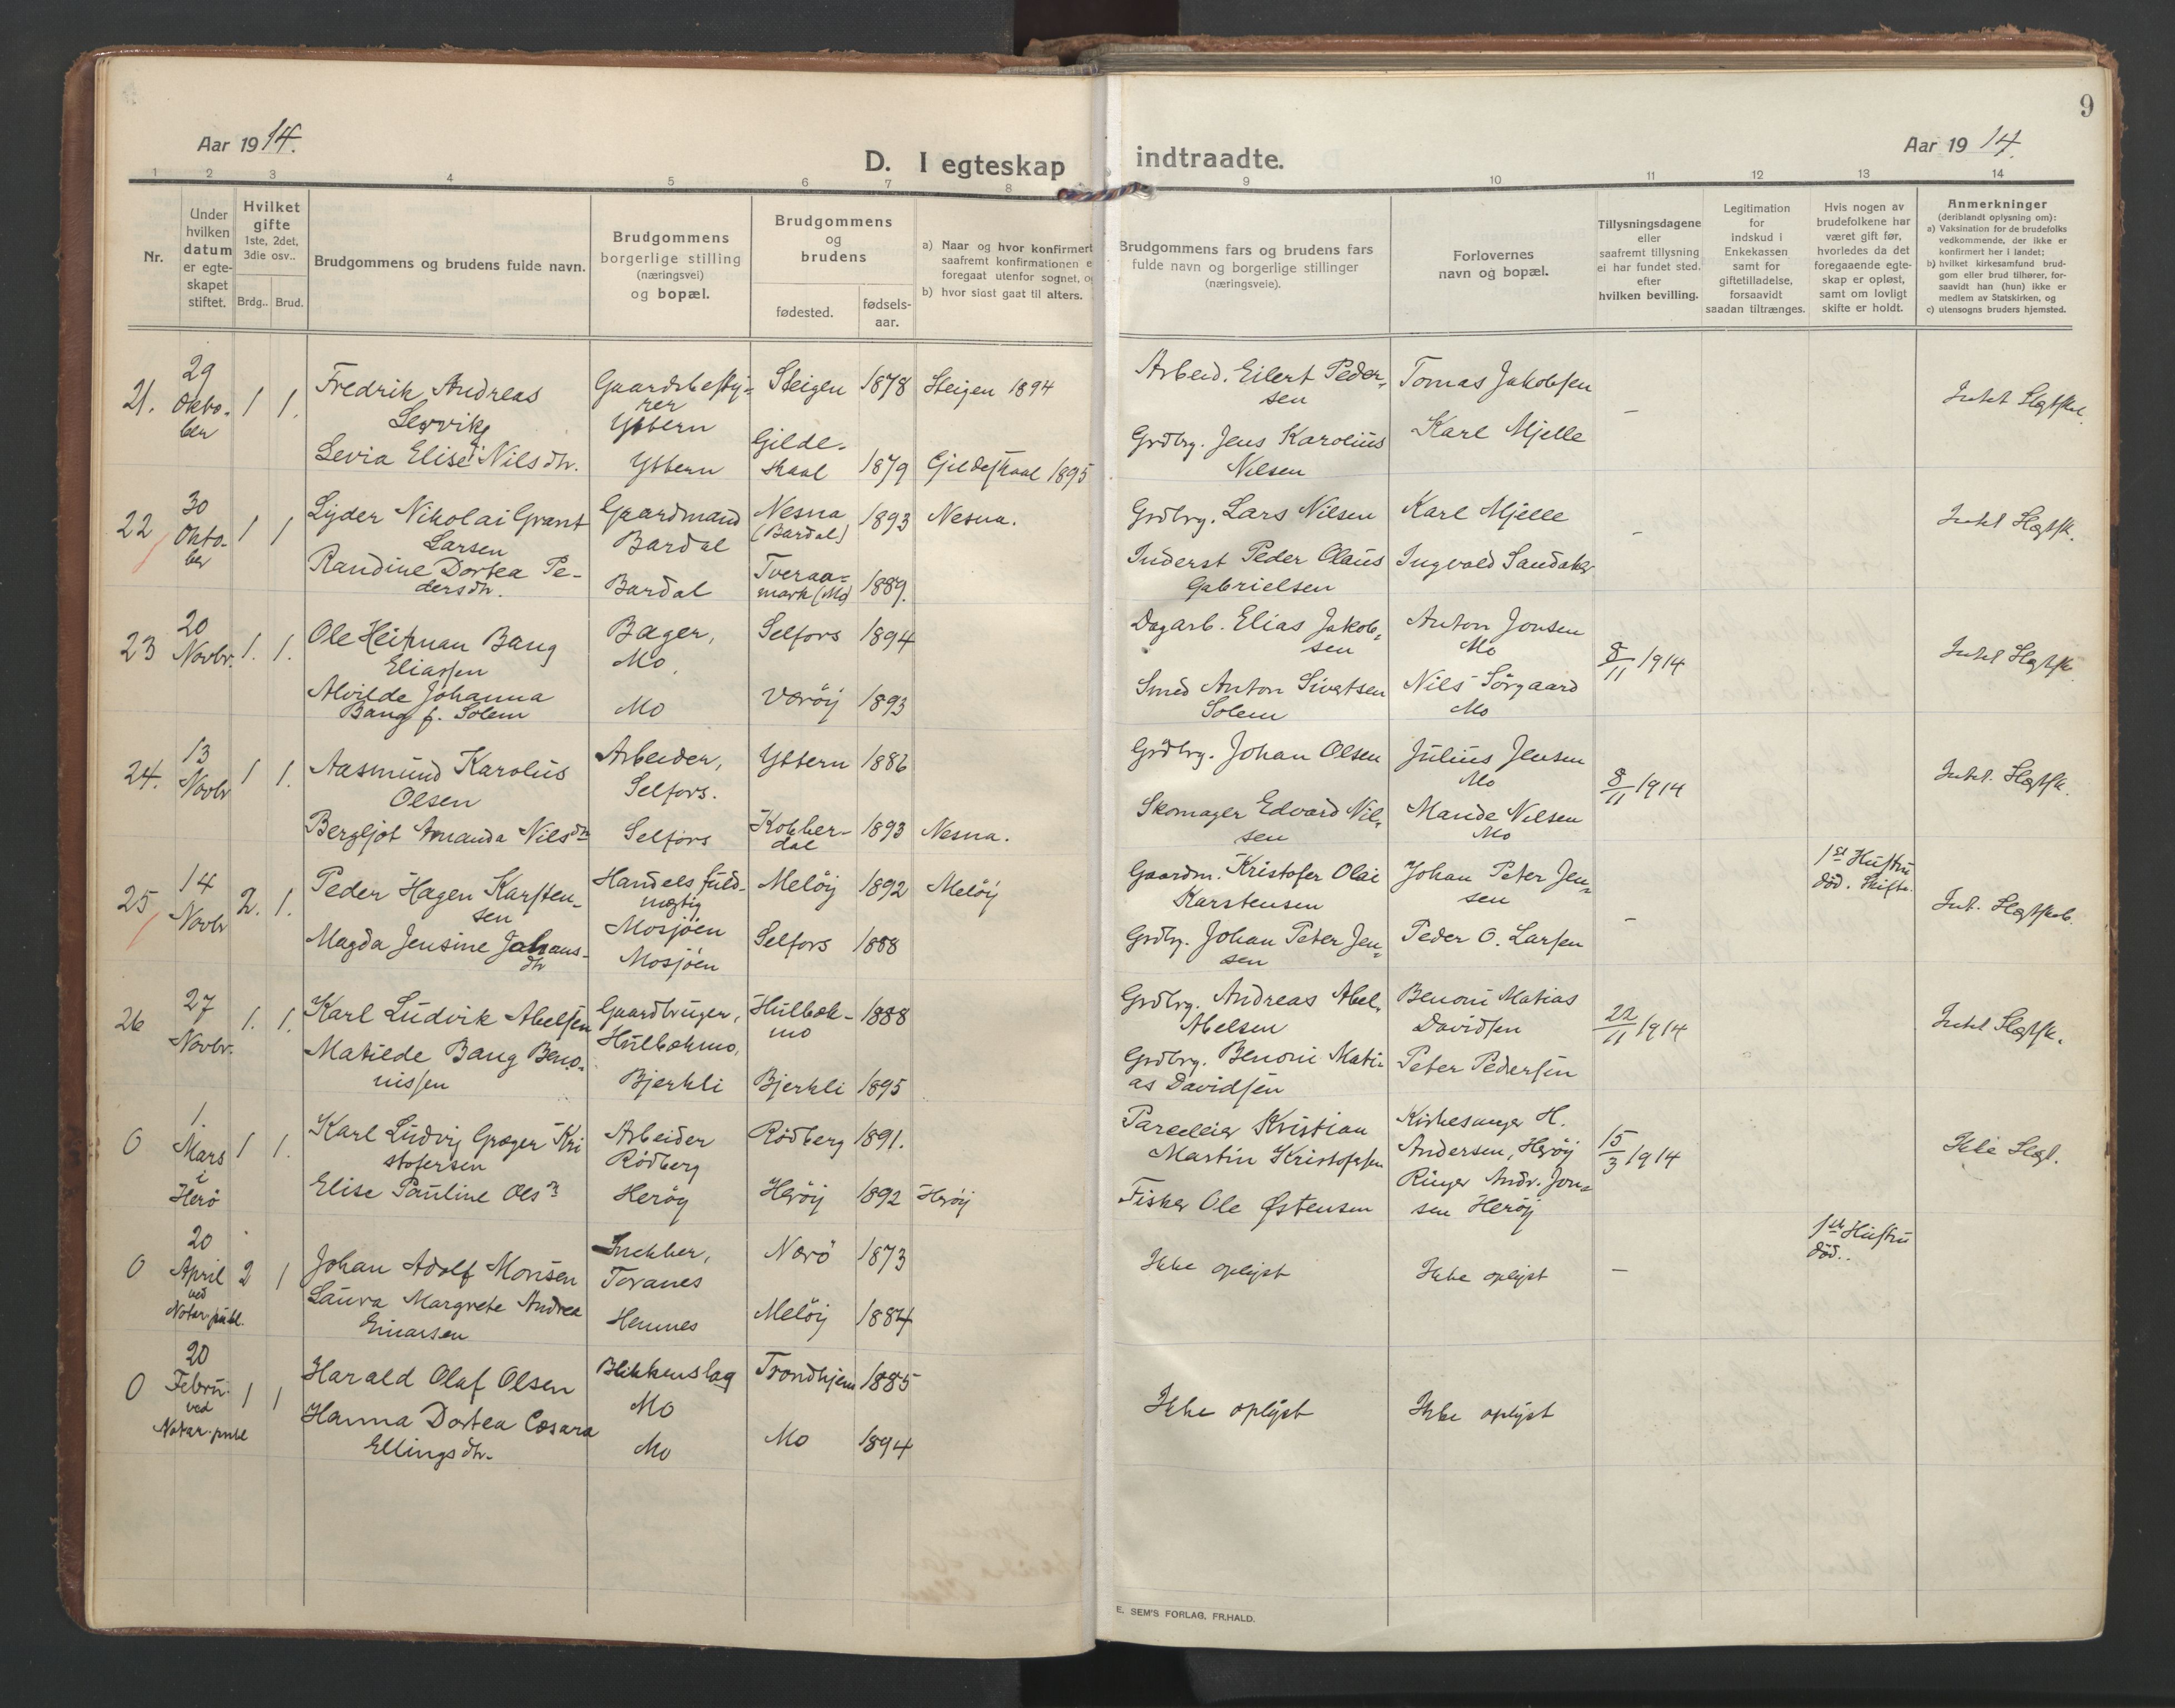 9
Aar 1914.
Aar 1914.
D. I egteskap indtraadte.
1 2 3 4 5 6 7 8 9 10 11 12 13 14
Nr.
Under
hvilken
datum
er egte-
skapet
stiftet.
Hvilket
gifte
1ste, 2det,
3die osv..
Brdg.. Brud.
Brudgommens og brudens fulde navn.
Brudgommens
borgerlige stilling
(næringsvei)
og bopæl.
Brudgommens
og
brudens
fødested.
fødsels-
aar.
a) Naar og hvor konfirmert
saafremt konfirmationen e
foregaat utenfor sognet, og
b) hvor sidst gaat til alters.
Brudgommens fars og brudens fars
fulde navn og borgerlige stillinger
(næringsveie).
Forlovernes
navn og bopæl.
Tillysningsdagene
eller
saafremt tillysning
ei har fundet sted.
efter
hvilken bevilling.
Legitimation
for
indskud i
Enkekassen
samt for
giftetilladelse,
forsaavidt
saadan tiltrænges.
Hvis nogen av
brudefolkene har
været gift før,
hvorledes da det
foregaaende egte-
skap er opløst,
samt om lovligt
skifte er holdt.
Anmerkninger
(deriblandt oplysning om):
a) Vaksination for de brudefolks
vedkommende, der ikke er
konfirmert her i landet;
b) hvilket kirkesamfund brud-
gom eller brud tilhører, for-
saavidt han (hun) ikke er
medlem av Statskirken, og
c) utensogns bruders hjemsted.
21.
29
Okto-
ber
1 1.
Fredrik Andreas
Levia Elise Nilsdtr.
Gaardsbesty-
rer
Ytteren
Ytteren
Steigen 1878 Steigen 1894
Gilde-
skaal 1879 Gildeskaal 1895
Arbeid. Eilert Peder-
sen
Grdbrg. Jens Karolius
Nilsen
Tomas Jakobsen
Karl Mjelle
-
22
30
Okto-
ber
1 1
Lyder Nikolai Grant
Larsen
Randine Dortea Pe-
dersdtr.
Gaardmand
Bardal
Bardal
Nesna
(Bardal) 1893 Nesna.
Tveraa-
mark (Mo) 1889.
Grdbrg. Lars Nilsen
Inderst Peder Olaus
Gabrielsen
Karl Mjelle
Ingvald Sandaker
-
23
20
Novbr.
1. 1.
Ole Heitman Bang
Eliassen
Alvilde Johanna
Bang f. Solem
Bager,
Mo.
Mo
Selfors 1894
Værøy 1893
Dagarb. Elias Jakob-
sen
Smed Anton Sivertsen
Solem
Anton Jonsen
Mo
Nils Sørgaard
Mo
8/11 1914
24.
13
Novbr
1 1.
Aasmund Karolius
Olsen
Bergljot Amanda Nilsdtr
Arbeider,
Selfors.
Selfors
Ytteren 1886
Kobber-
dal 1893 Nesna.
Grdbrg. Johan Olsen
Skomager Edvard Nil-
sen
Julius Jensen
Mo
Mande Nilsen
Mo
8/11 1914
25
14
Novbr
2. 1.
Peder Hagen Karsten-
sen
Magda Jensine Johans-
dtr
Handelsfuld-
mægtig
Mosjöen
Mosjöen
Melöy 1892 Melöy
Selfors 1888
Gaardm. Kristofer Olai
Karstensen
Grdbg. Johan Peter Jen-
sen
Johan Peter Jen-
sen
Peder O. Larsen
-
1ste Hustru
död. Skifte.
26
27
Novbr.
1. 1.
Karl Ludvik Abelsen
Matilde Bang Beno-
nissen
Gaardbruger,
Hulbækmo,
Bjerkli
Hulbæk-
mo 1888
Bjerkli 1895
Grdbrg. Andreas Abel
Abelsen
Grdbrg. Benoni Mati-
as Davidsen
Benoni Matias
Davidsen
Peter Pedersen
22/11 1914
0
1.
Mars
i
Herö
1 1.
Karl Ludvig Græger Kri
stofersen
Elise Pauline Olsdtr
Arbeider
Rödberg
Heröy
Rödberg 1891.
Heröy 1892 Heröy
Parceleier Kristian
Martin Kristofersen
Fisker Ole Østensen
Kirkesanger H.
Andersen, Heröy
Ringer Andr. Jon-
sen Heröy
15/3 1914
0
20
April
ved
Notar. publ.
2 1
Johan Adolf Monsen
Laura Margrete Andrea
Einarsen
Snekker,
Toranes
Hemnes
Nærö 1873
Melöy 1884
Ikke oplyst
Ikke oplyst
-
1ste Hustru
död..
0
20
Febru.
ved
Notar. publ
1 1
Harald Olaf Olsen
Hanna Dortea Cæsara
Ellingsdtr.
Blikkenslag
Mo
Mo
Trondhjem 1885
Mo 1894
Ikke oplyst
Ikke oplyst
E. SEM'S FORLAG, FR.HALD.